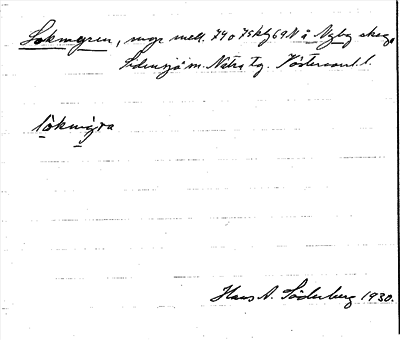 Lokmyren, myr mell. 740 75kfg69N å Nyby skog,
Sidensjö sn. Nätra tg. Västernorrl. l.
lòkmýra
Hans A. Söderberg 1930.